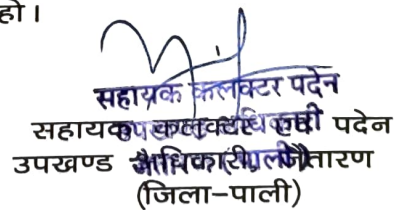 हो।
सहायक कलक्टर पदेन
सहायक कलक्टर एवं पदेन
उपखण्ड अधिकारी, जैतारण
(जिला-पाली)